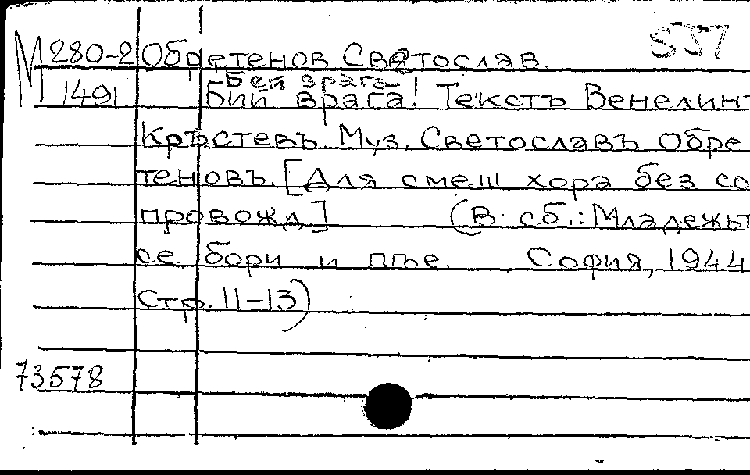 М 280-2 Обретенов Светослав. 557
1491 Бей врага
Бий врага! Текстъ Венелинъ
Кръстевъ. Муз. Светославъ Обре
теновъ. [Для смеш хора без со
провожд.] (В сб.: Младежьт
се бори и пѣе София, 1944
стр. 11-13)
73578